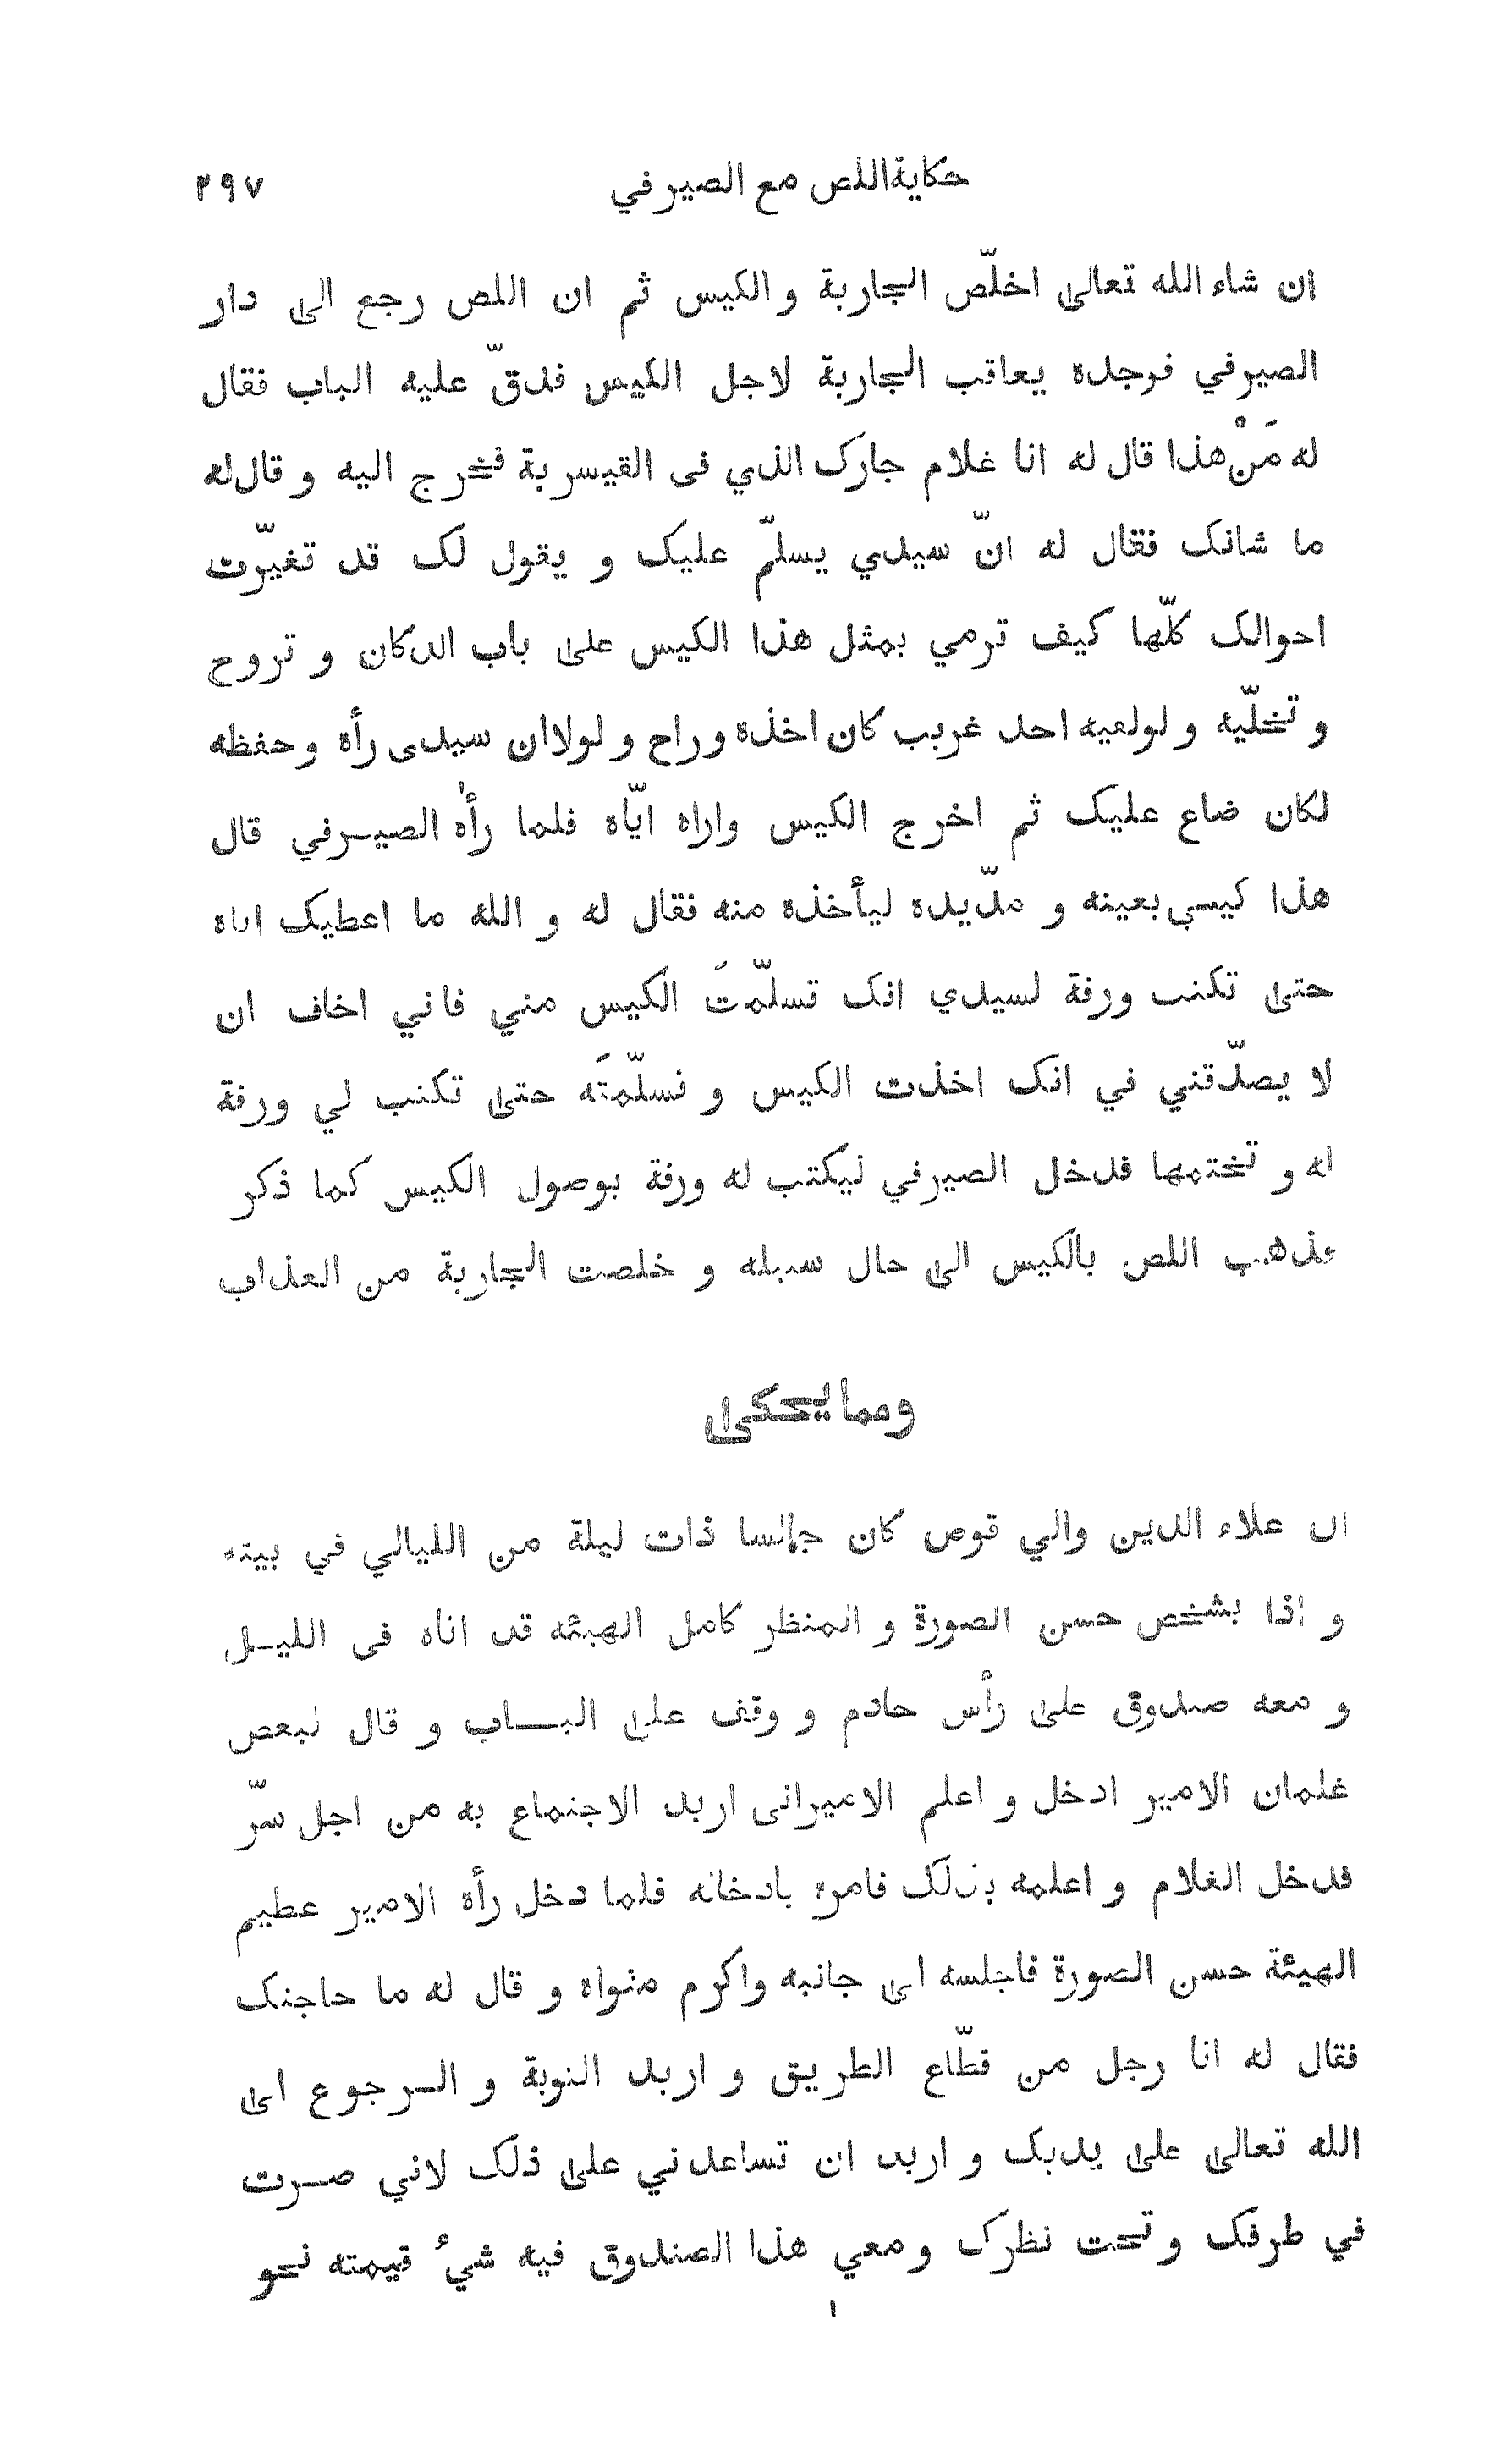 حكاية اللص مع الصيرفي ٢٩٧
ان شاء الله تعالى اخلّص الجارية والكيس ثم ان اللص رجع الى دار
الصيرفي فوجده يعاقب الجارية لاجل الكيس فدقّ عليه الباب فقال
له مَنْ هذا قال له انا غلام جارك الذي فى القيسرية فخرج اليه و قال له
ما شانك فقال له انّ سيدي يسلّم عليك و يقول لك قد تغيّرت
احوالك كلّها كيف ترمي بمثل هذا الكيس على باب الدكان و تروح
و تخلّيه و لولعيه احد غريب كان اخذه و راح و لولا ان سيدى رأه و حفظه
لكان ضاع عليك ثم اخرج الكيس واراه ايّاه فلما رأه الصيرفي قال
هذا كيسي بعينه و مدّ يده ليأخذه منه فقال له و الله ما اعطيك اياه
حتى تكتب ورقة لسيدي انك تسلّمتَ الكيس مني فاني اخاف ان
لا يصدّقني في انك اخذت الكيس و تسلّمتَه حتى تكتب لي ورقة
له و تختمها فدخل الصيرفي ليكتب له ورقة بوصول الكيس كما ذكر
فذهب اللص بالكيس الى حال سبيله و خلصت الجارية من العذاب
ومما يحكى
ان علاء الدين والي قوص كان جالسا ذات ليلة من الليالي في بيته
و اذا بشخص حسن الصورة و المنظر كامل الهيئه قد اتاه فى الليل
و معه صندوق على رأس خادم و وقف على الباب و قال لبعض
غلمان الامير ادخل و اعلم الامير انى اريد الاجتماع به من اجل سرّ
فدخل الغلام و اعلمه بذلك فامره بادخاله فلما دخل رأه الامير عظيم
الهيئة حسن الصورة فاجلسه الى جانبه واكرم مثواه و قال له ما حاجتك
فقال له انا رجل من قطّاع الطريق و اريد التوبة و الرجوع الى
الله تعالى على يديك و اريد ان تساعدني على ذلك لاني صرت
في طرفك و تحت نظرك و معي هذا الصندوق فيه شئ قيمته نحو
ا